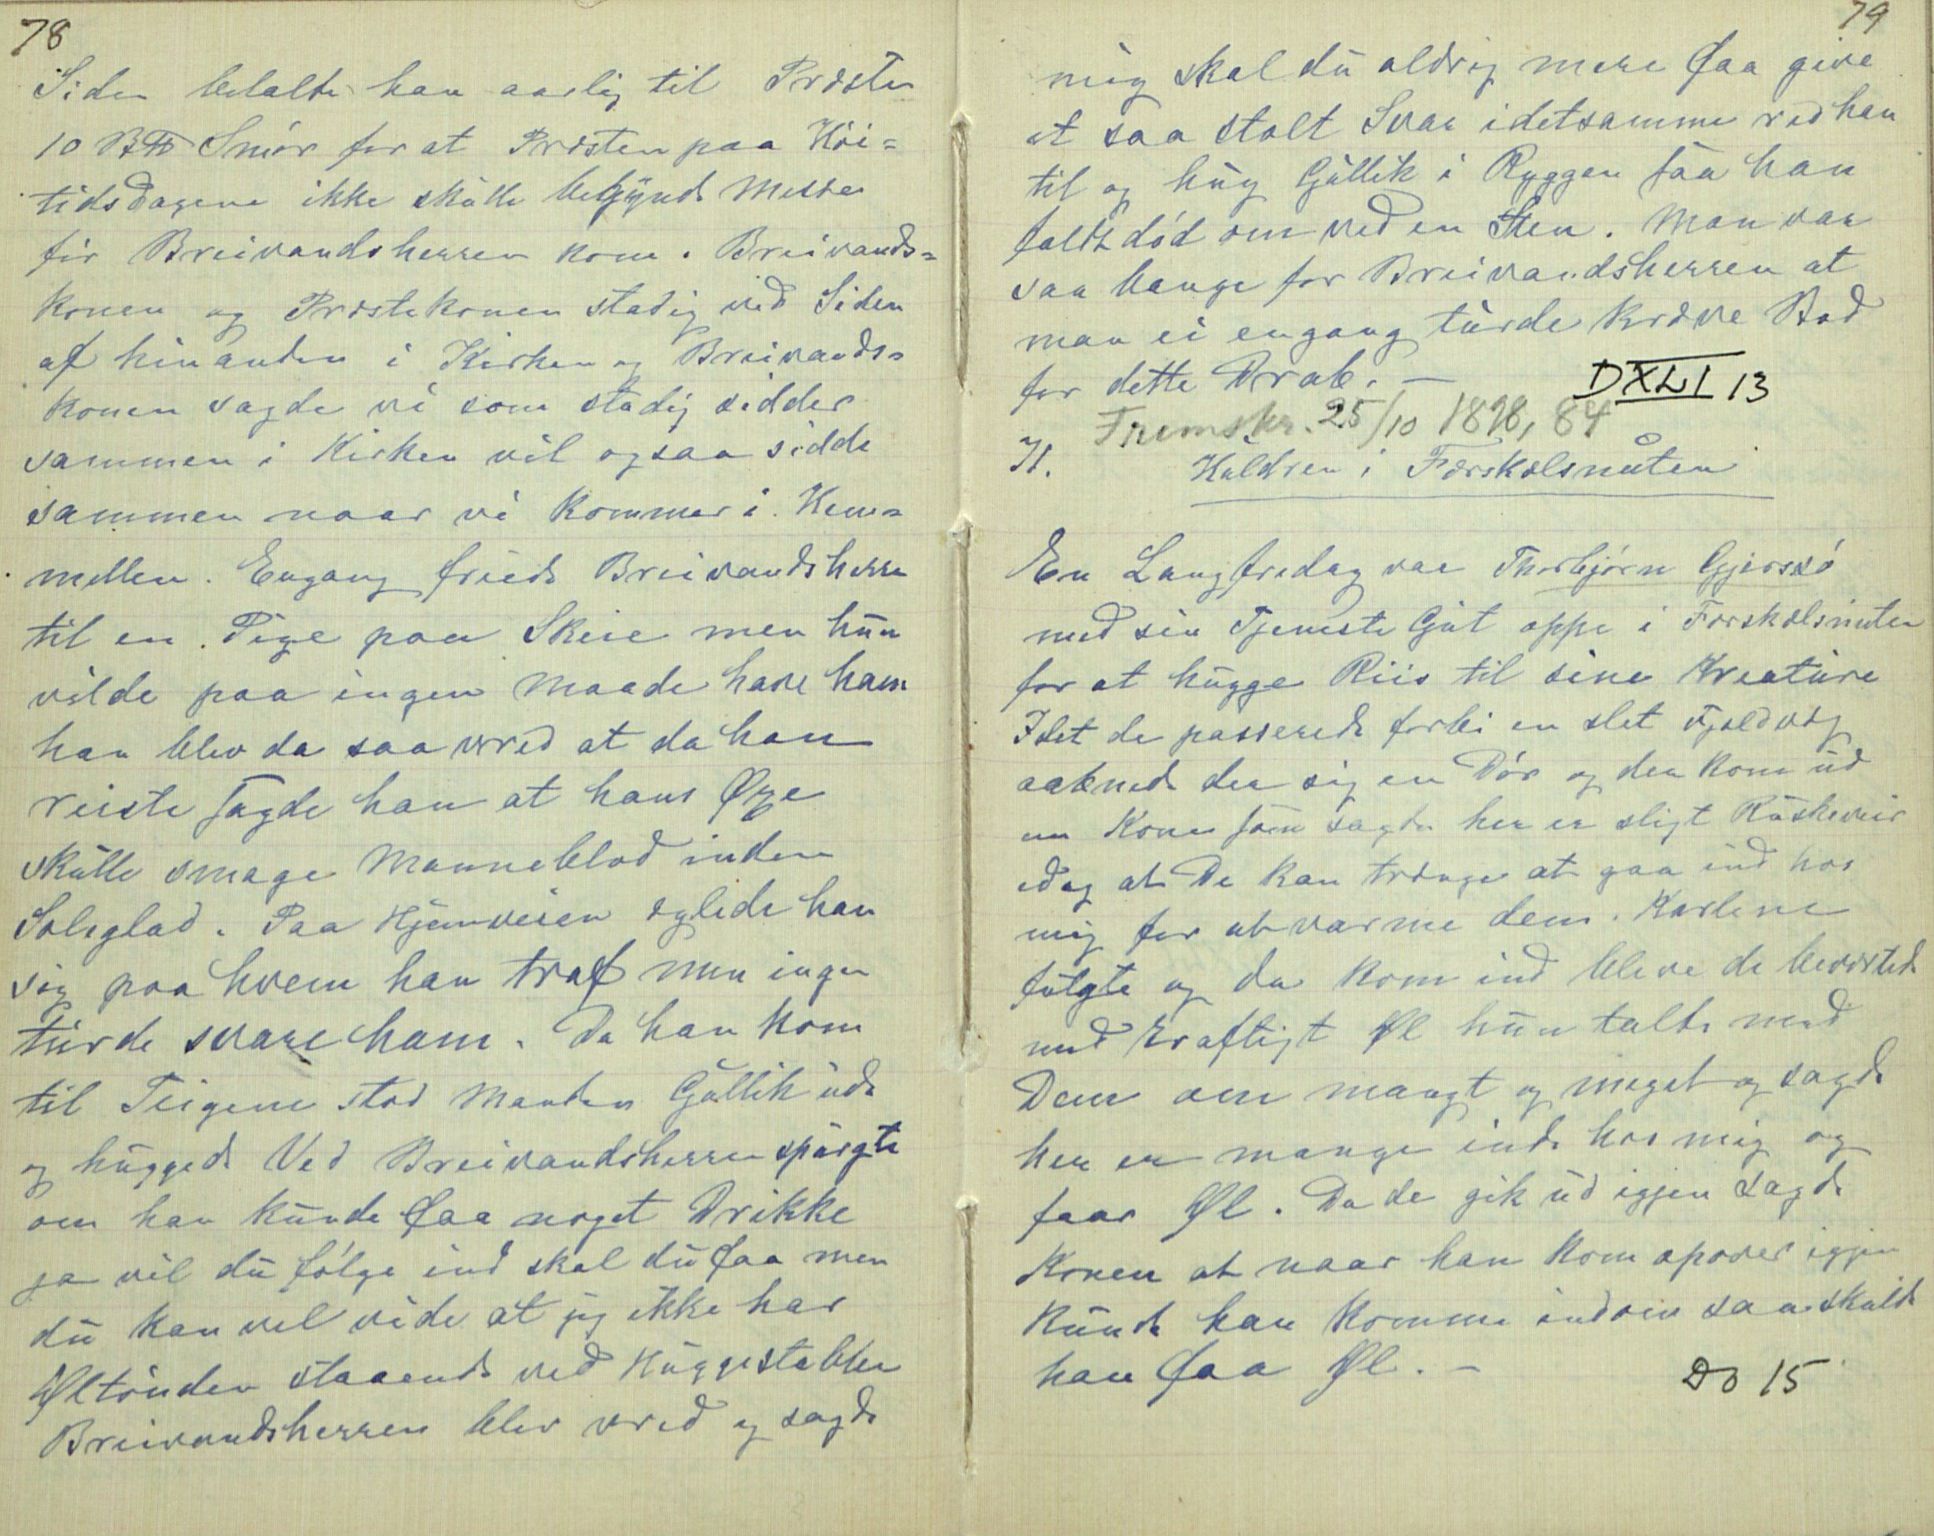 78
Siden betalte han aarlig til Præsten
10 B℔ Smör for at Præsten paa Höi=
tidsdagene ikke skulle begynde Messe
för Breivandsherren kom. Breivands=
konen og Præstekonen stadig ved Siden
af hinanden i Kirken og Breivands=
konen sagde vi som stadig sidder
sammen i Kirken vil ogsaa sidde
sammen naar vi kommer i Him=
mellen. Engang friede Breivandsherren
til en Pige paa Skeie men hun
vilde paa ingen Maade have ham
han blev da saa vred at da han
reiste sagde han at hans Øxe
skulle smage Manneblod inden
Soleglad. Paa Hjemveien eglede han
sig paa hvem han traf men ingen
turde svare ham. Da han kom
til Teigene stod Manden Gullik ude
og huggede Ved Breivandsherren spurgte
om han kunde faa noget Drikke
ja vil du fölge ind skal du faa men
du kan vel vide at jeg ikke har
Øltönden staaende ved Huggestabben
Breivandsherren blev vred og sagde
79
mig skal du aldrig mere faa give
et saa stolt Svar i detsamme red han
til og hug Gullik i Ryggen saa han
faldt död om ved en Sten. Man var
saa bange for Breivandsherren at
man ei engang turde kræve Bod
for dette Drab. —
DXLI 13
Fremskr. 25/10 1898, 84
H. Huldren i Førskelsnuten
En Langfredag var Thorbjörn Gjersö
med sin Tjeneste Gut oppe i Forskelsnuten
for at hugge Riis til sine Kreature
Idet de passerede forbi en slet Fjeldvæg
aabnede der sig en Dör og der kom ud
en Kone som sagde her er sligt Ruskeveir
idag at De kan trænge at gaa ind hos
mig for at varme dem. Karlene
fulgte og da kom ind bleve de beværtede
med kraftigt Øl hun talte med
Dem om mangt og meget og sagde
her er mange inde hos mig og
faar Øl. Da de gik ud igjen sagde
Konen at naar han kom opover igjen
kunde han komme indom saa skulde
han faa Øl. —
DO 15